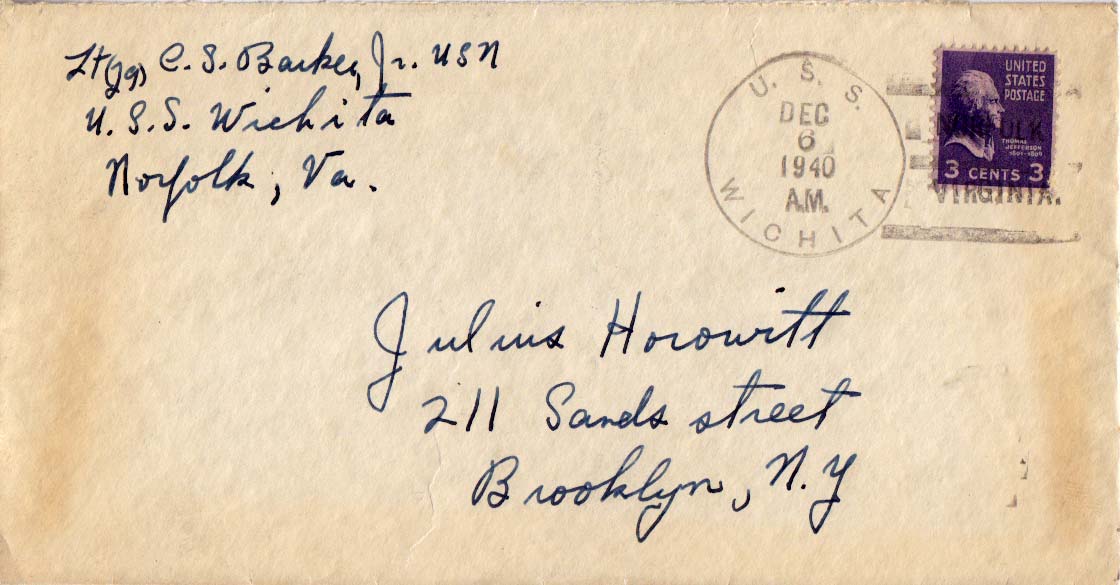 Lt(jg) C. S. Barker, Jr. USN
U.S.S. Wichita
Norfolk, Va.
U. S. S.
DEC
6
1940
A.M.
WICHITA
UNITED
STATES
POSTAGE
NORFOLK
THOMAS
JEFFERSON
1801-1809
3 CENTS 3
VIRGINIA.
Julius Horowitt
211 Sands street
Brooklyn, N.Y